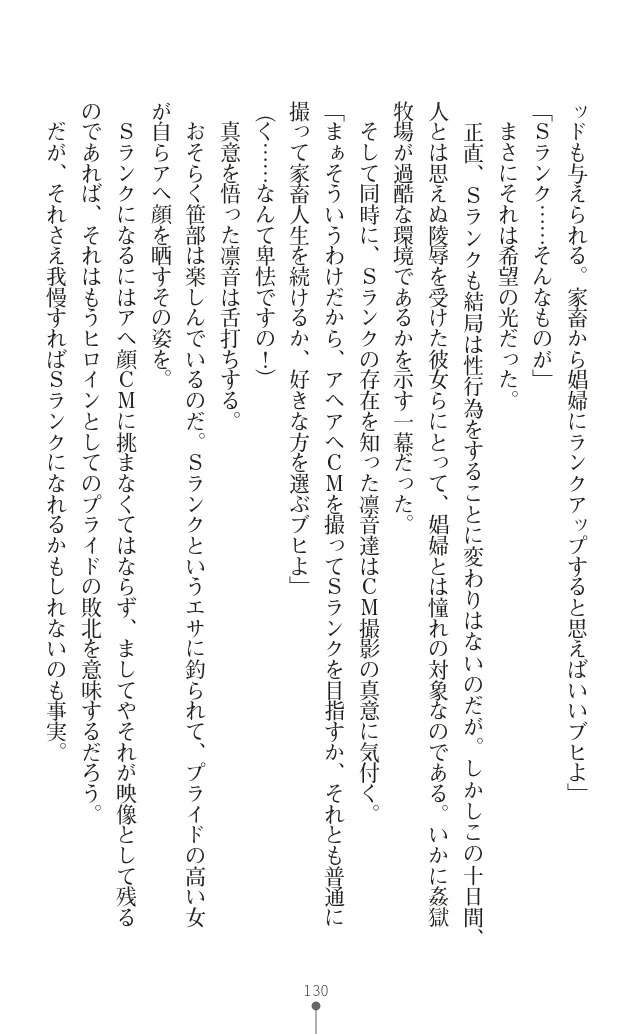 ッドも与えられる。家畜から娼婦にランクアップすると思えばいいブヒよ」
「Sランク……そんなものが」
まさにそれは希望の光だった。
正直、Sランクも結局は性行為をすることに変わりはないのだが。しかしこの十日間、
人とは思えぬ陵辱を受けた彼女らにとって、娼婦とは憧れの対象なのである。いかに姦獄
牧場が過酷な環境であるかを示す一幕だった。
そして同時に、Sランクの存在を知った凛音達はCM撮影の真意に気付く。
「まぁそういうわけだから、アヘアヘCMを撮ってSランクを目指すか、それとも普通に
撮って家畜人生を続けるか、好きな方を選ぶブヒよ」
(く……なんて卑怯ですの!)
真意を悟った凛音は舌打ちする。
おそらく笹部は楽しんでいるのだ。Sランクというエサに釣られて、プライドの高い女
が自らアヘ顔を晒すその姿を。
Sランクになるにはアヘ顔CMに挑まなくてはならず、ましてやそれが映像として残る
のであれば、それはもうヒロインとしてのプライドの敗北を意味するだろう。
だが、それさえ我慢すればSランクになれるかもしれないのも事実。
130